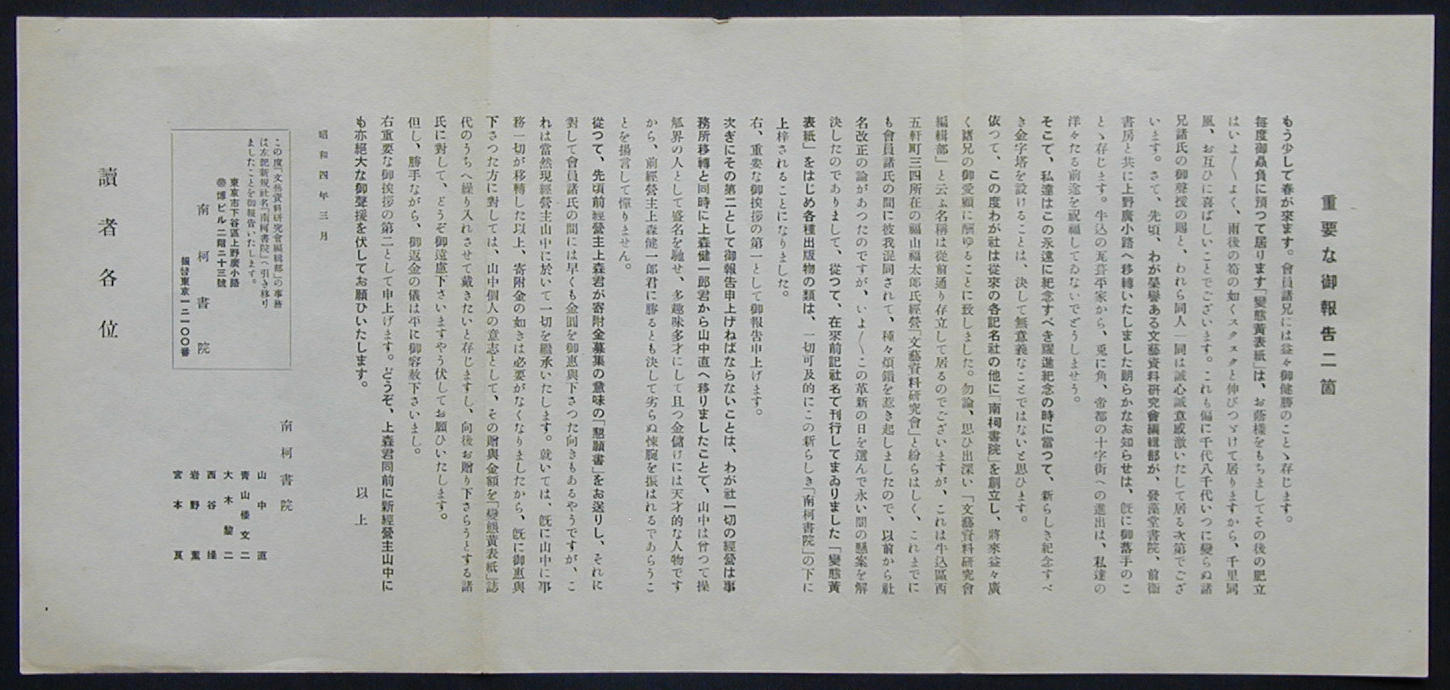 重要な御報告二箇
もう少しで春が來ます。會員諸兄には益々御健勝のことゝ存じます。
毎度御贔負に預つて居ります「變態黃表紙」は、お蔭樣をもちましてその後の肥立
はいよ〳〵よく、雨後の筍の如くスクスクと伸びつゞけて居りますから、千里同
風、お互ひに喜ばしいことでございます。これも偏に千代八千代いつに變らぬ諸
兄諸氏の御聲援の賜と、われら同人一同は誠心誠意感激いたして居る次第でござ
います。さて、先頃、わが榮譽ある文藝資料硏究會編輯部が、發藻堂書院、前衞
書房と共に上野廣小路へ移轉いたしました朗らかなお知らせは、旣に御落手のこ
とゝ存じます。牛込の瓦葺平家から、兎に角、帝都の十字街への進出は、私達の
洋々たる前途を祝福してゐないでどうしませう。
そこで、私達はこの永遠に紀念すべき躍進紀念の時に當つて、新らしき紀念すべ
き金字塔を設けることは、決して無意義なことではないと思ひます。
依つて、この度わが社は從來の各記名社の他に「南柯書院」を創立し、將來益々廣
く諸兄の御愛顧に酬ゆることに致しました。勿論、思ひ出深い「文藝資料硏究會
編輯部」と云ふ名稱は從前通り存立して居るのでございますが、これは牛込區西
五軒町三四所在の福山福太郎氏經營「文藝資料硏究會」と紛らはしく、これまでに
も會員諸氏の間に彼我混同されて、種々煩鎖を惹き起しましたので、以前から社
名改正の論があつたのですが、いよ〳〵この革新の日を選んで永い間の懸案を解
決したのでありまして、從つて、在來前記社名で刊行してまゐりました「變態黃
表紙」をはじめ各種出版物の類は、一切可及的にこの新らしき「南柯書院」の下に
上梓されることになりました。
右、重要な御挨拶の第一として御報告申上げます。
次ぎにその第二として御報告申上げねばならないことは、わが社一切の經營は事
務所移轉と同時に上森健一郎君から山中直へ移りましたことで、山中は曾つて操
觚界の人として盛名を馳せ、多趣味多才にして且つ金儲けには天才的な人物です
から、前經營主上森健一郎君に勝るとも決して劣らぬ悚腕を振はれるであらうこ
とを揚言して憚りません。
從つて、先頃前經營主上森君が寄附金募集の意味の「懇願書」をお送りし、それに
對して會員諸氏の間には早くも金圓を御惠與下さつた向きもあるやうですが、こ
れは當然現經營主山中に於いて一切を繼承いたします。就いては、旣に山中に事
務一切が移轉した以上、寄附金の如きは必要がなくなりましたから、旣に御惠與
下さつた方に對しては、山中個人の意志として、その贈與金額を「變態黃表紙」誌
代のうちへ繰り入れさせて戴きたいと存じますし、向後お贈り下さらうとする諸
氏に對して、どうぞ御遠慮下さいますやう伏してお願ひいたします。
但し、勝手ながら、御返金の儀は平に御容赦下さいまし。
右重要な御挨拶の第二として申上げます。どうぞ、上森君同前に新經營主山中に
も亦絕大な御聲援を伏してお願ひいたします。
以上
昭和四年三月
南柯書院
山中直
靑山倭文二
大木黎二
西谷操
岩野薰
宮本
この度「文藝資料硏究會編輯部」の事務
は左記新規社名「南柯書院」へ引き移り
ましたことを御報告いたします。
東京市下谷區上野廣小路
博ビル二階二十三號
南柯書院
振替東京一二一〇〇番
讀者各位